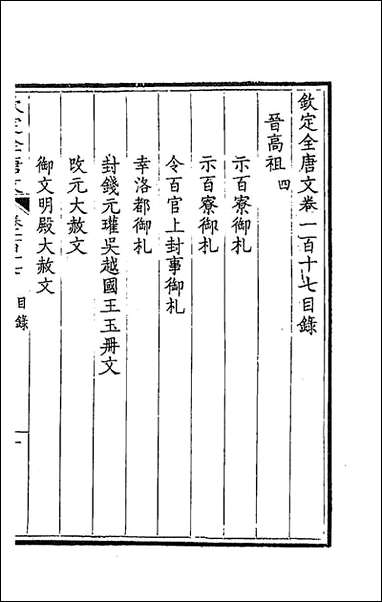 欽定全唐文卷一百十七目錄
晉高祖 四
示百寮御札
示百寮御札
令百官上封事御札
幸洛都御札
封錢元瓘吳越國王玉冊文
改元大赦文
御文明殿大赦文
目錄